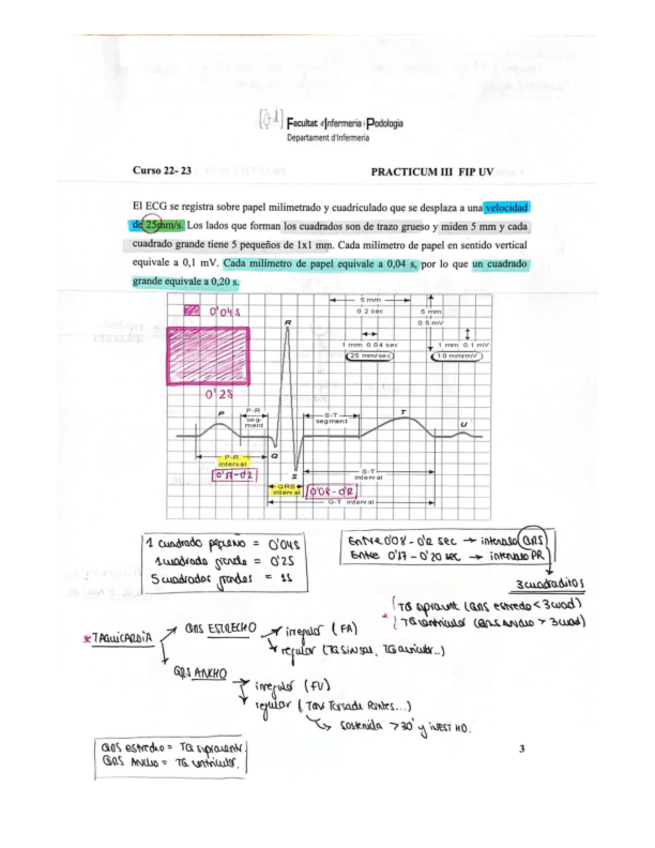 Facultat d'Infermeria i Podologia
Departament d'Infermeria
Curso 22- 23 PRACTICUM III FIP UV
El ECG se registra sobre papel milimetrado y cuadriculado que se desplaza a una velocidad
de 25mm/s. Los lados que forman los cuadrados son de trazo grueso y miden 5 mm y cada
cuadrado grande tiene 5 pequeños de 1x1 mm. Cada milímetro de papel en sentido vertical
equivale a 0,1 mV. Cada milímetro de papel equivale a 0,04 s, por lo que un cuadrado
grande equivale a 0,20 s.
0'04s
5 mm
0.2 sec
5 mm
0.5 mV
R
1 mm 0.04 sec
1 mm 0.1 mV
25 mm/sec
10 mm/mV
0'2s
P
P-R
seg-
ment
S-T
segment
T
U
Q
P-R
interval
S
S-T
interval
QRS
interval
0'08 - 0'12
Q-T interval
1 cuadrado pequeño = 0'04s
1 cuadrado grande = 0'2s
5 cuadrados grandes = 1s
Entre 0'08 - 0'12 sec → intervalo QRS
Entre 0'17 - 0'20 sec → intervalo PR
3 cuadraditos
TQ supravent (QRS estrecho < 3 cuad)
* TQ ventricular (QRS ANCHO > 3 cuad)
* TAQUICARDIA
QRS ESTRECHO → irregular (FA)
regular (TQ SINSAL, TQ auricular..)
QRS ANCHO
irregular (FV)
regular (TAV Torsade Pointes...)
sostenida > 30' y
QRS estrecho = TQ supravent
QRS Ancho = TQ ventricular.
3